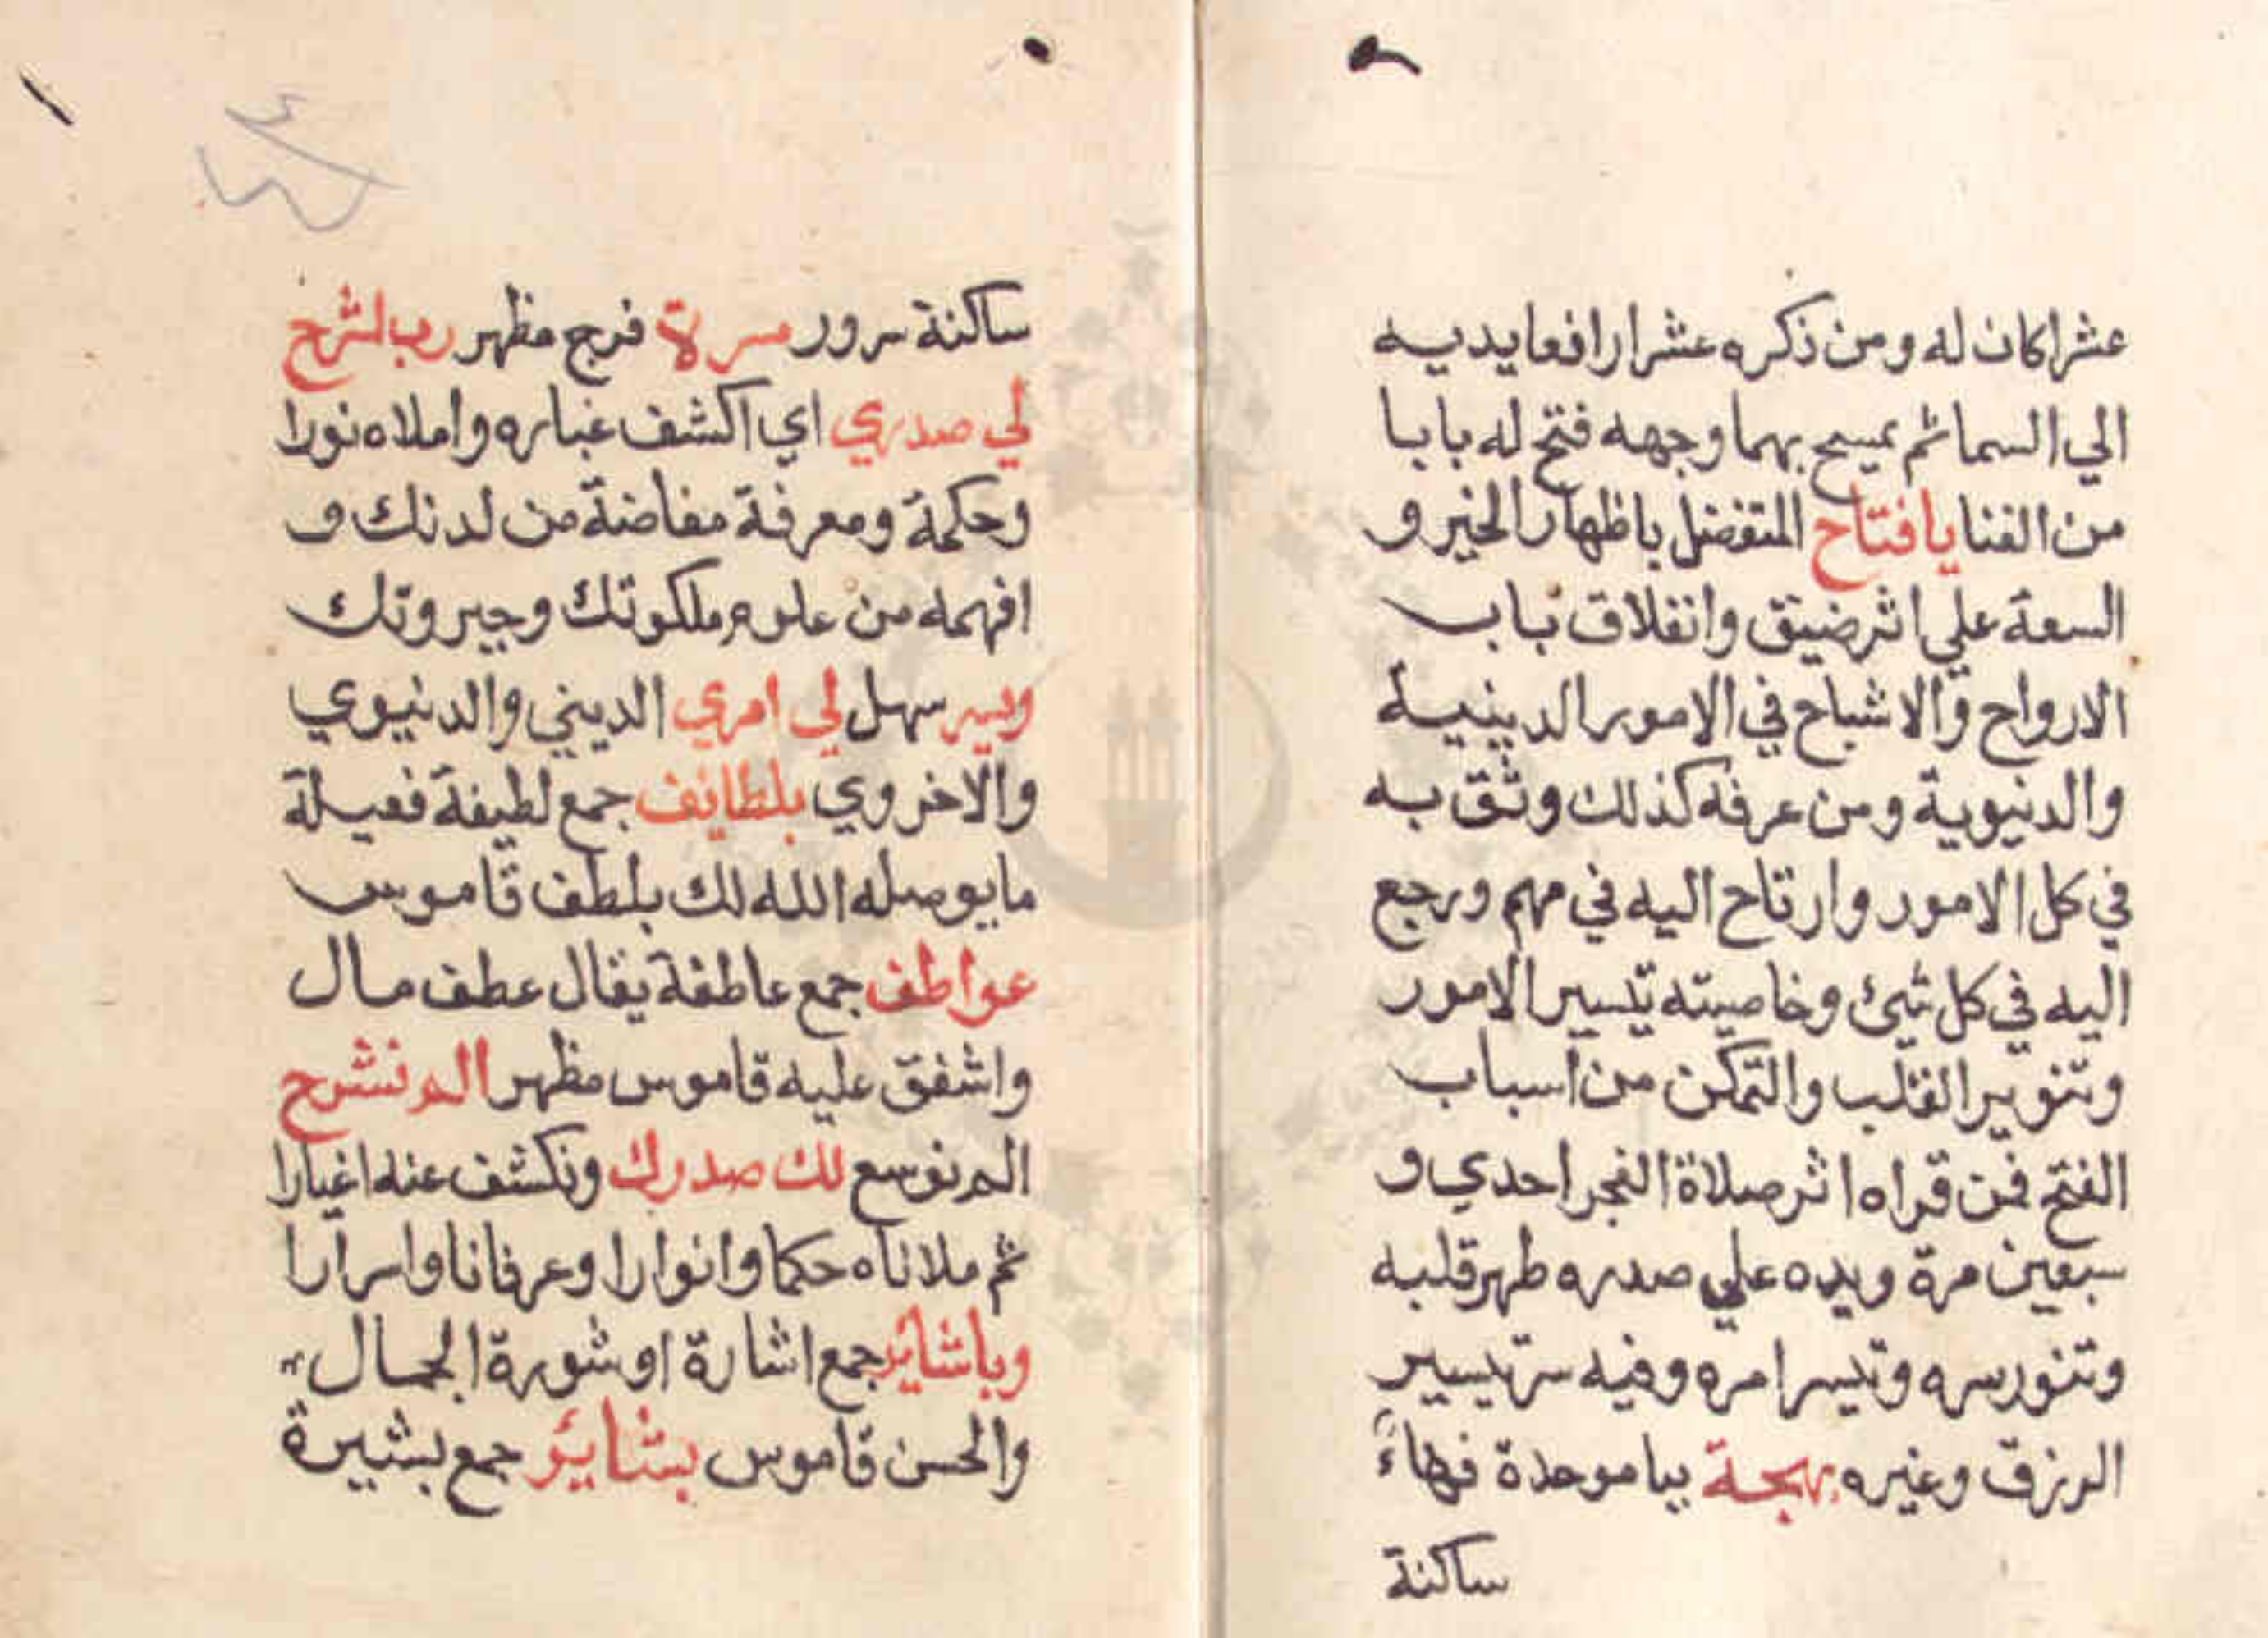 عشرا كان له ومن ذكره عشرا رافعا يديه
الي السما ثم يمسح بهما وجهه فتح له بابا
من الغنا يا فتاح المتفضل باظهار الخير و
السعة علي اثر ضيق وانغلاق باب
الارواح والاشباح في الامور الدينية
والدنيوية ومن عرفه كذلك وثق به
في كل الامور وارتاح اليه في مهم ورجع
اليه في كل شيئ وخاصيته تيسير الامور
وتنوير القلب والتمكن من اسباب
الفتح فمن قراه اثر صلاة الفجر احدي و
سبعين مرة ويده علي صدره طهر قلبه
وتنور سره وتيسر امره وفيه سر تيسير
الرزق وغيره بهجة ببا موحدة فهاء
ساكنة
ساكنة سرور مسرة فرج مظهر رب اشرح
لي صدري اي اكشف غباره واملاه نورا
وحكمة ومعرفة مفاضة من لدنك و
افهمه من علوم ملكوتك وجبروتك
ويسر سهل لي امري الديني والدنيوي
والاخروي بلطايف جمع لطيفة فعيلة
ما يوصله الله لك بلطف قاموس
عواطف جمع عاطفة يقال عطف مال
واشفق عليه قاموس مظهر الم نشرح
الم نوسع لك صدرك ونكشف عنه اغيارا
ثم ملاناه حكما وانوارا وعرفانا واسرارا
وباشاير جمع اشارة او شورة الجمال
والحسن قاموس بشاير جمع بشيرة